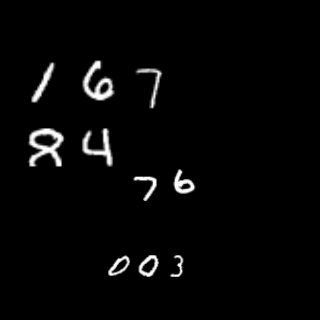 167
84
76
003